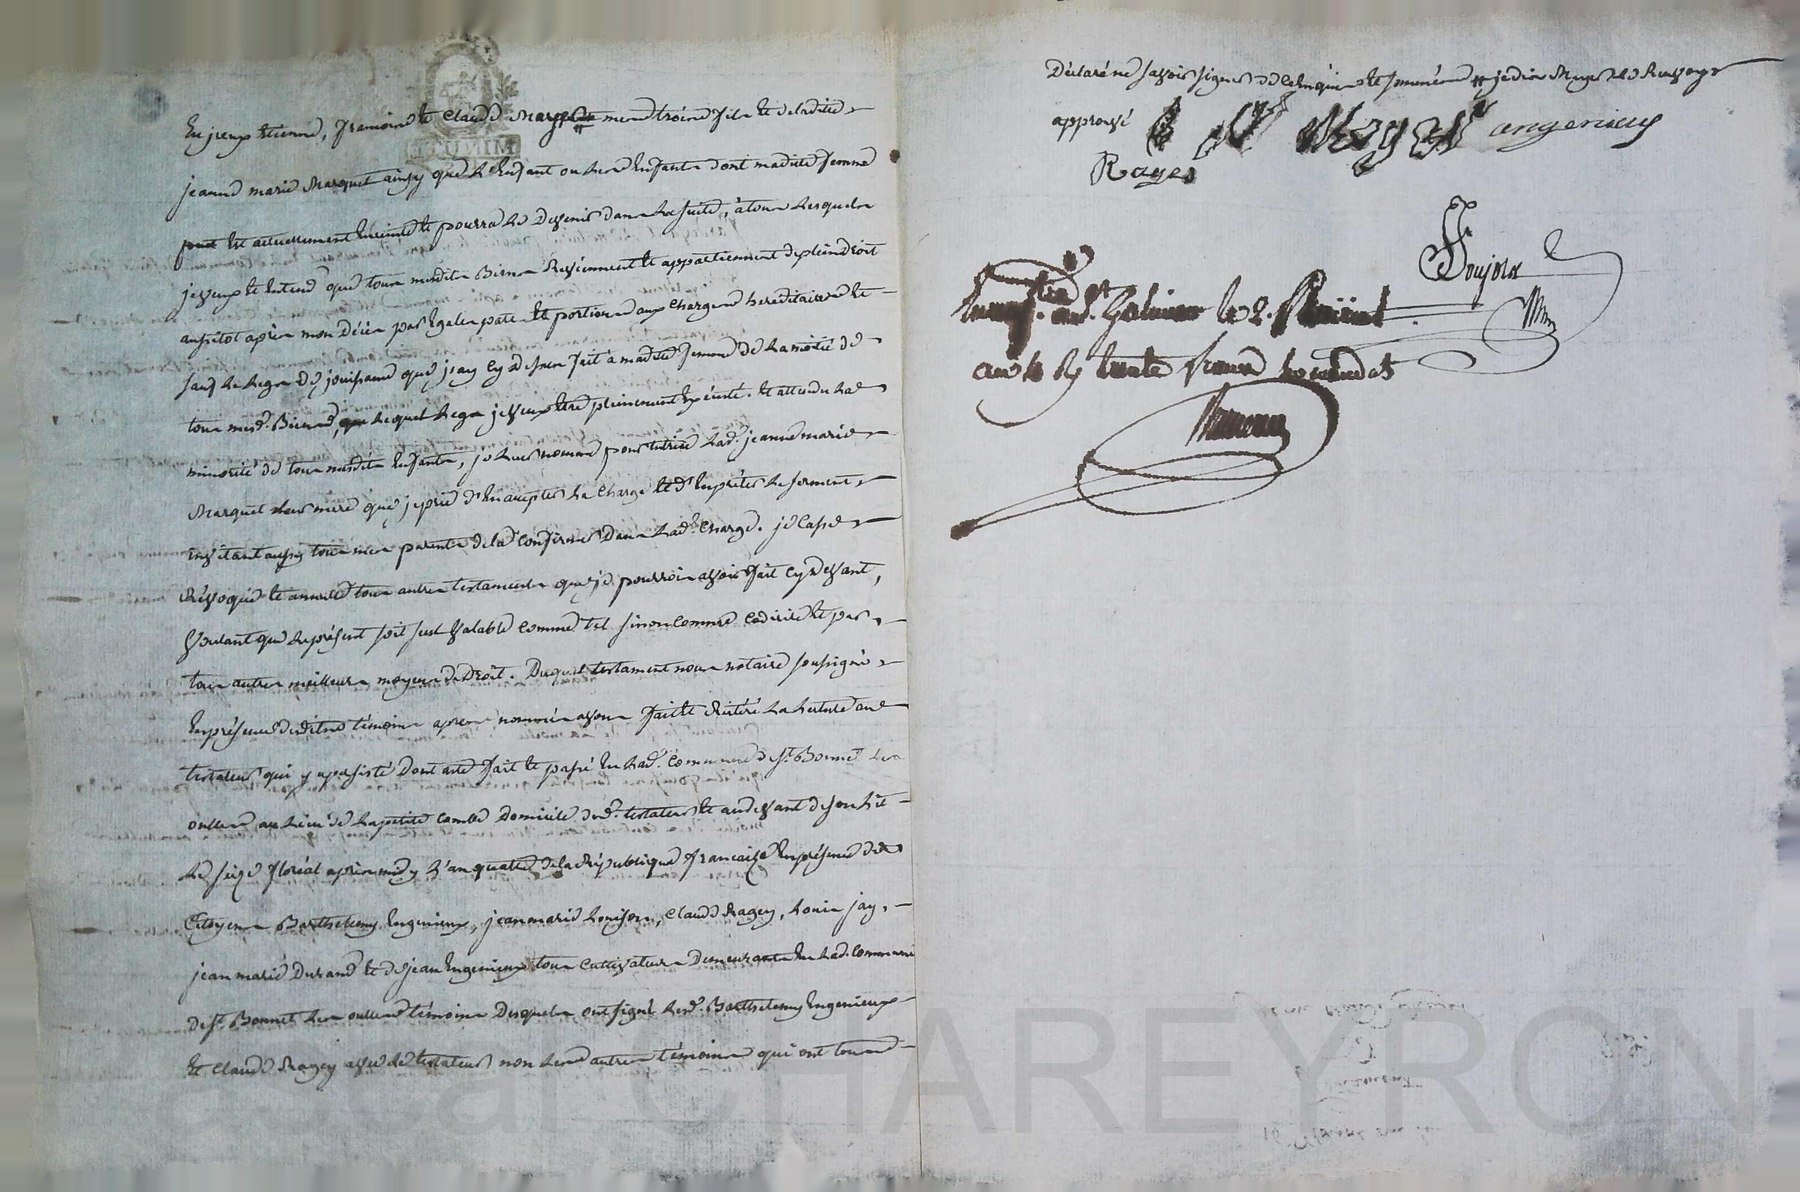 heureux Etienne, francoise et Claude Mayet # mes trois fils et deladite
jeanne marie Marquet ainsy que l'Enfant ou les Enfants dont madite femme
est actuellement Enceinte et pourra le devenir dans la suite, à tous lesquels
je veux et entend que tous mesdits Biens Reviennent et appartiennent de plein droit
aussitot après mon décès par Egales parts et portions aux charges hereditaires et
sauf le legs de jouissance que j'ay cy dessus fait à madite femme de la moitié de
tous mesd. Biens, lequel legs je veux etre pleinement Exécuté. et attendu la
minorité de tous mesdits Enfants, je leur nomme pour tutrice lad. jeanne marie
Marquet leur mere que je prie d'en accepter la charge et d'en prêter le serment
invitant aussy tous mes parents de la confirmer dans lad. charge. je casse
Révoque et annulle tous autres testaments que je pourrois avoir fait cy devant,
Voulant que le présent soit seul valable comme tel sinon comme codicile et par
tous autres meilleurs moyens de Droit. Duquel testament nous notaire soussigné
En présence desdits témoins après nommés avons fait et réitéré la lecture au
testateur, qui y a persisté dont acte fait et passé en lad. commune de St. Bonnet les
oulles au lieu de la petite Combe Domicile dud. testateur et au devant de son lit
le seize floréal après midy l'an quatre de la République francaise En présence des
Citoyens Barthelemy Engenieux, jean marie Louison, Claude Ragey, Louis jay,
jean marie Durand et de jean Engenieux tous cultivateurs demeurants en lad. commune
de St. Bonnet les oulles témoins desquels ont signé led. Barthelemy Engenieux
et Claude Ragey avec le testateur non les autres témoins qui ont tous
Déclaré ne savoir signer de ce Enquis et sommés # je dis
approuvé angenieux
Rages
Soujols
St. Galmier le 2.
an 4 Rs trente francs
CHAREYRON